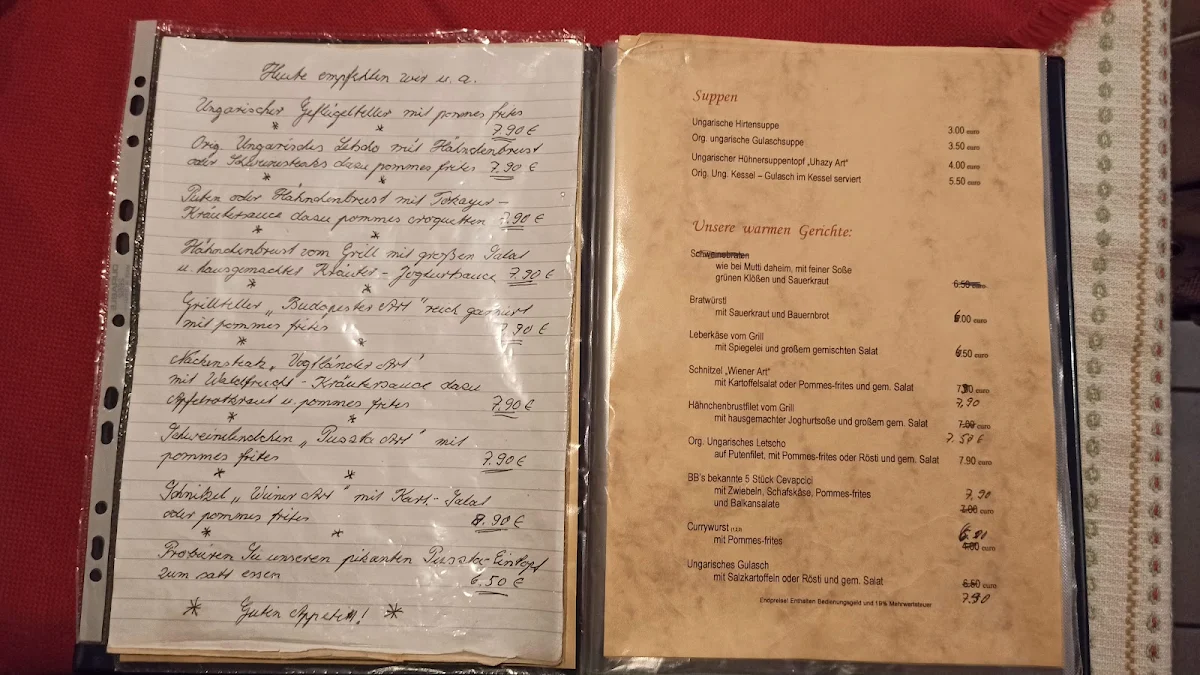 Heute empfehlen wir u. a.
Ungarischer Geflügelteller mit pommes frites
7.90 €
* *
Orig. Ungarisches Letscho mit Hähnchenbrust
oder Schweinesteaks dazu pommes frites 7.90 €
* *
Puten oder Hähnchenbrust mit Tokayer-
Kräutersauce dazu pommes croquetten 7.90 €
* *
Hähnchenbrust vom Grill mit großen Salat
u. hausgemachter Kräuter-Joghurtsauce 7.90 €
* *
Grillteller "Budapester Art" reich garniert
mit pommes frites 7.90 €
* *
Nackensteak "Vogtländer Art"
mit Waldfrucht-Kräutersauce dazu
Apfelrotkraut u. pommes frites 7.90 €
* *
Schweinelendchen "Pussta Art" mit
pommes frites 7.90 €
* *
Schnitzel "Wiener Art" mit Kart.-Salat
oder pommes frites 8.90 €
* *
Probieren Sie unseren pikanten Pussta-Eintopf
zum satt essen 6.50 €
* Guten Appetit! *
Suppen
Ungarische Hirtensuppe 3.00 euro
Org. ungarische Gulaschsuppe 3.50 euro
Ungarischer Hühnersuppentopf „Uhazy Art" 4.00 euro
Orig. Ung. Kessel – Gulasch im Kessel serviert 5.50 euro
Unsere warmen Gerichte:
Schweinebraten
wie bei Mutti daheim, mit feiner Soße
grünen Klößen und Sauerkraut 6.50 euro
Bratwürstl
mit Sauerkraut und Bauernbrot 6.00 euro
Leberkäse vom Grill
mit Spiegelei und großem gemischten Salat 6.50 euro
Schnitzel „Wiener Art"
mit Kartoffelsalat oder Pommes-frites und gem. Salat 7.90 euro
Hähnchenbrustfilet vom Grill 7,90
mit hausgemachter Joghurtsoße und großem gem. Salat 7.00 euro
Org. Ungarisches Letscho 7.50 €
auf Putenfilet, mit Pommes-frites oder Rösti und gem. Salat 7.90 euro
BB's bekannte 5 Stück Cevapcici
mit Zwiebeln, Schafskäse, Pommes-frites 7,90
und Balkansalate 7.00 euro
Currywurst
mit Pommes-frites 4.00 euro
Ungarisches Gulasch
mit Salzkartoffeln oder Rösti und gem. Salat 6.50 euro
7.90
Endpreise! Enthalten Bedienungsgeld und 19% Mehrwertsteuer